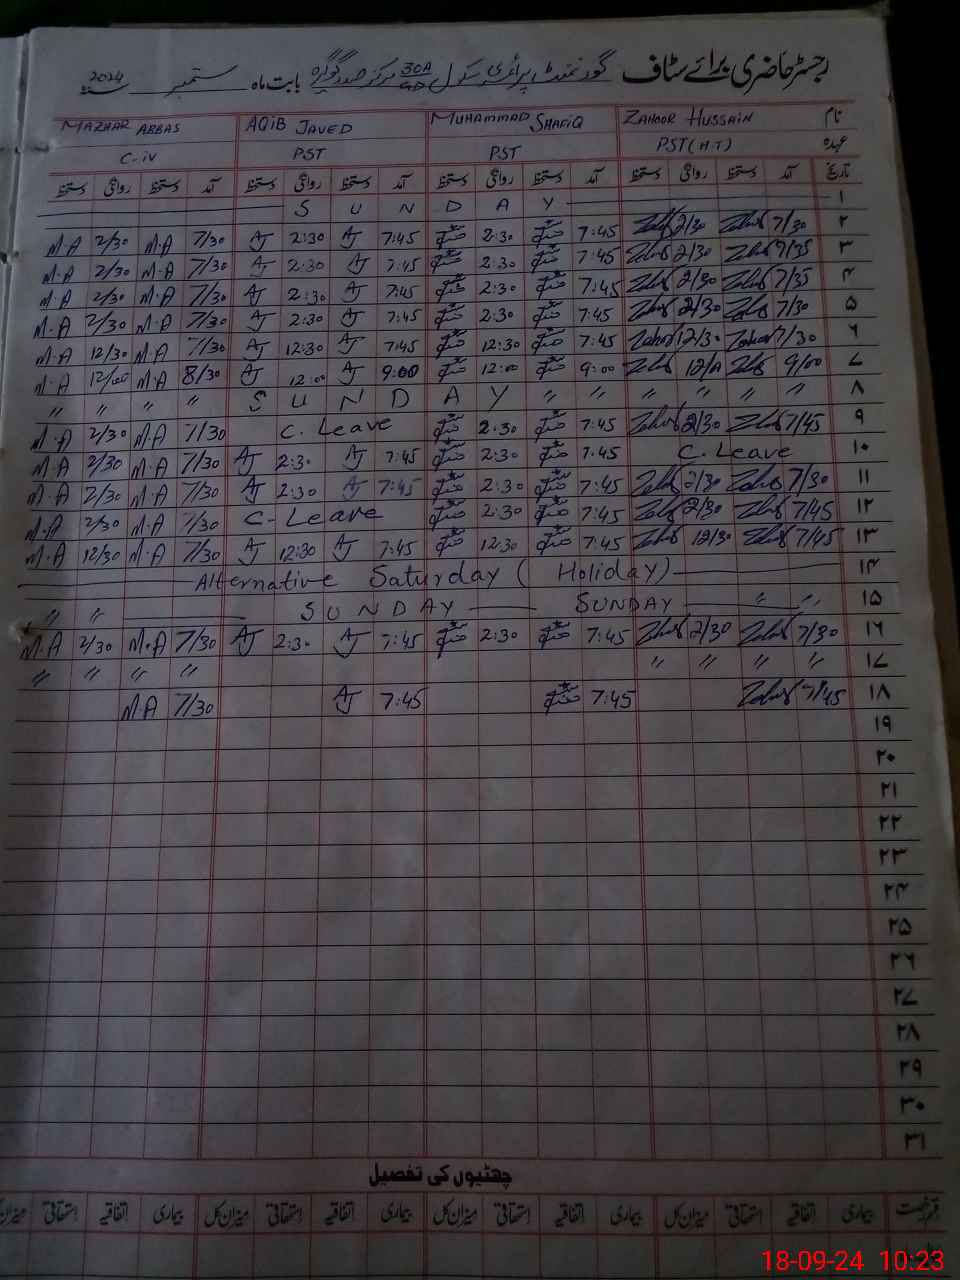 رجسٹر حاضری برائے سٹاف گورنمنٹ پرائمری سکول 30A مرکز بابت ماہ ستمبر 2024
MAZHAR ABBAS AQIB JAVED MUHAMMAD SHAFIQ ZAHOOR HUSSAIN نام
C-iv PST PST PST(H.T) عہدہ
دستخط روانگی دستخط آمد دستخط روانگی دستخط آمد دستخط روانگی دستخط آمد دستخط روانگی دستخط آمد تاریخ
S U N D A Y ۱
M.A 2/30 M.A 7/30 AJ 2:30 AJ 7:45 2:30 7:45 2/30 7/30 ۲
M.A 2/30 M.A 7/30 AJ 2:30 AJ 7:45 2:30 7:45 2/30 7/35 ۳
M.A 2/30 M.A 7/30 AJ 2:30 AJ 7:45 2:30 7:45 2/30 7/35 ۴
M.A 2/30 M.A 7/30 AJ 2:30 AJ 7:45 2:30 7:45 2/30 7/30 ۵
M.A 12/30 M.A 7/30 AJ 12:30 AJ 7:45 12:30 7:45 12/30 7/30 ۶
M.A 12/00 M.A 8/30 AJ 12:00 AJ 9:00 12:00 9:00 9/00 ۷
" " " " S U N D A Y " " " " " " ۸
M.A 2/30 M.A 7/30 C. Leave 2:30 7:45 2/30 7/45 ۹
M.A 2/30 M.A 7/30 AJ 2:30 AJ 7:45 2:30 7:45 C. Leave ۱۰
M.A 2/30 M.A 7/30 AJ 2:30 AJ 7:45 2:30 7:45 2/30 7/30 ۱۱
M.A 2/30 M.A 7/30 C- Leave 2:30 7:45 2/30 7/45 ۱۲
M.A 12/30 M.A 7/30 AJ 12:30 AJ 7:45 12:30 7:45 12/30 7/45 ۱۳
Alternative Saturday ( Holiday) ۱۴
" " SUNDAY SUNDAY " " ۱۵
M.A 2/30 M.A 7/30 AJ 2:30 AJ 7:45 2:30 7:45 2/30 7/30 ۱۶
" " " " " " " " ۱۷
M.A 7/30 AJ 7:45 7:45 7/45 ۱۸
۱۹
۲۰
۲۱
۲۲
۲۳
۲۴
۲۵
۲۶
۲۷
۲۸
۲۹
۳۰
۳۱
چھٹیوں کی تفصیل
میزان کل استحقاقی اتفاقیہ بیماری میزان کل استحقاقی اتفاقیہ بیماری میزان کل استحقاقی اتفاقیہ بیماری میزان کل استحقاقی اتفاقیہ بیماری
18-09-24 10:23